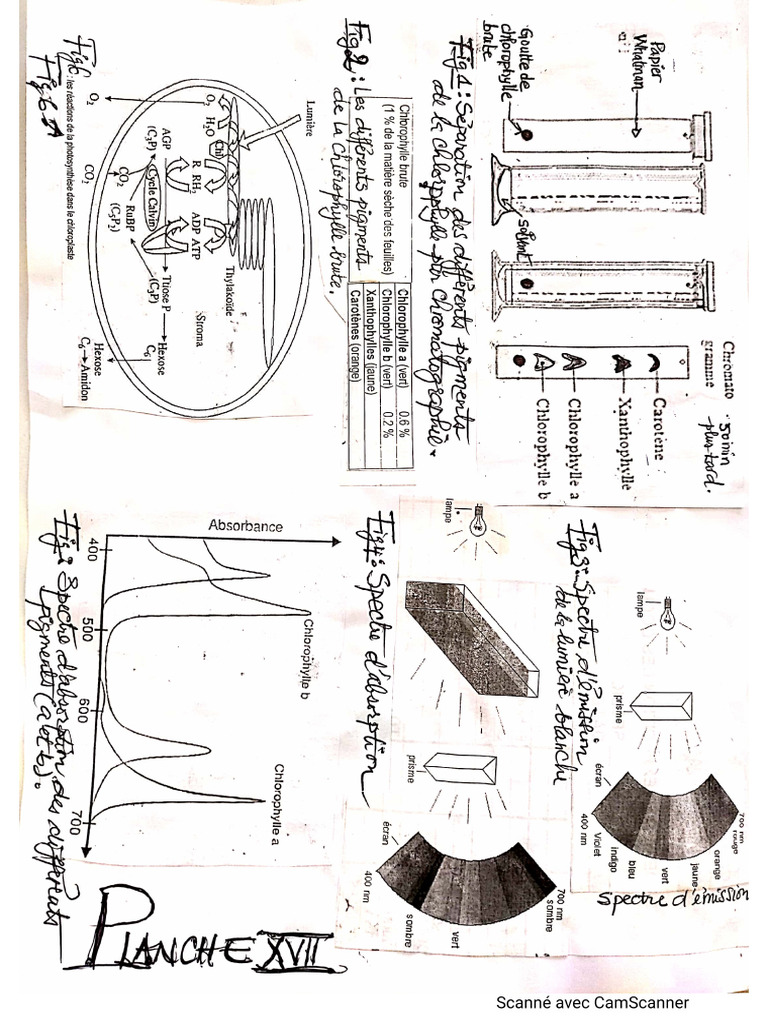 Papier
Whatman
Goutte de
chlorophylle
brute
solvant
Chromato
gramme
30 min
plus tard.
Carotène
Xanthophylle
Chlorophylle a
Chlorophylle b
Fig 1: Séparation des différents pigments
de la chlorophylle par chromatographie.
Chlorophylle brute
(1 % de la matière sèche des feuilles)
Chlorophylle a (vert) 0.6 %
Chlorophylle b (vert) 0.2 %
Xanthophylles (jaune)
Carotènes (orange)
Fig 2: Les différents pigments
de la chlorophylle brute.
Lumière
Thylakoïde
Stroma
O₂
H₂O
Chl
R RH₂
ADP ATP
AGP
(C₃P)
Cycle Calvin
Triose P
(C₃P)
Hexose
C₆
RuBP
(C₅P₂)
CO₂
O₂
CO₂
Hexose
C₆ → Amidon
Fig 6: les réactions de la photosynthèse dans le chloroplaste
Fig 6
lampe
prisme
écran
700 nm
rouge
orange
jaune
vert
bleu
Indigo
Violet
400 nm
Spectre d'émission
Fig 3: Spectre d'émission
de la lumière blanche
lampe
prisme
écran
700 nm
sombre
vert
sombre
400 nm
Fig 4: Spectre d'absorption
Absorbance
Chlorophylle b
Chlorophylle a
400
500
600
700
Fig : Spectre d'absorption des différents
pigments (a et b).
PLANCHE XVII
Scanné avec CamScanner